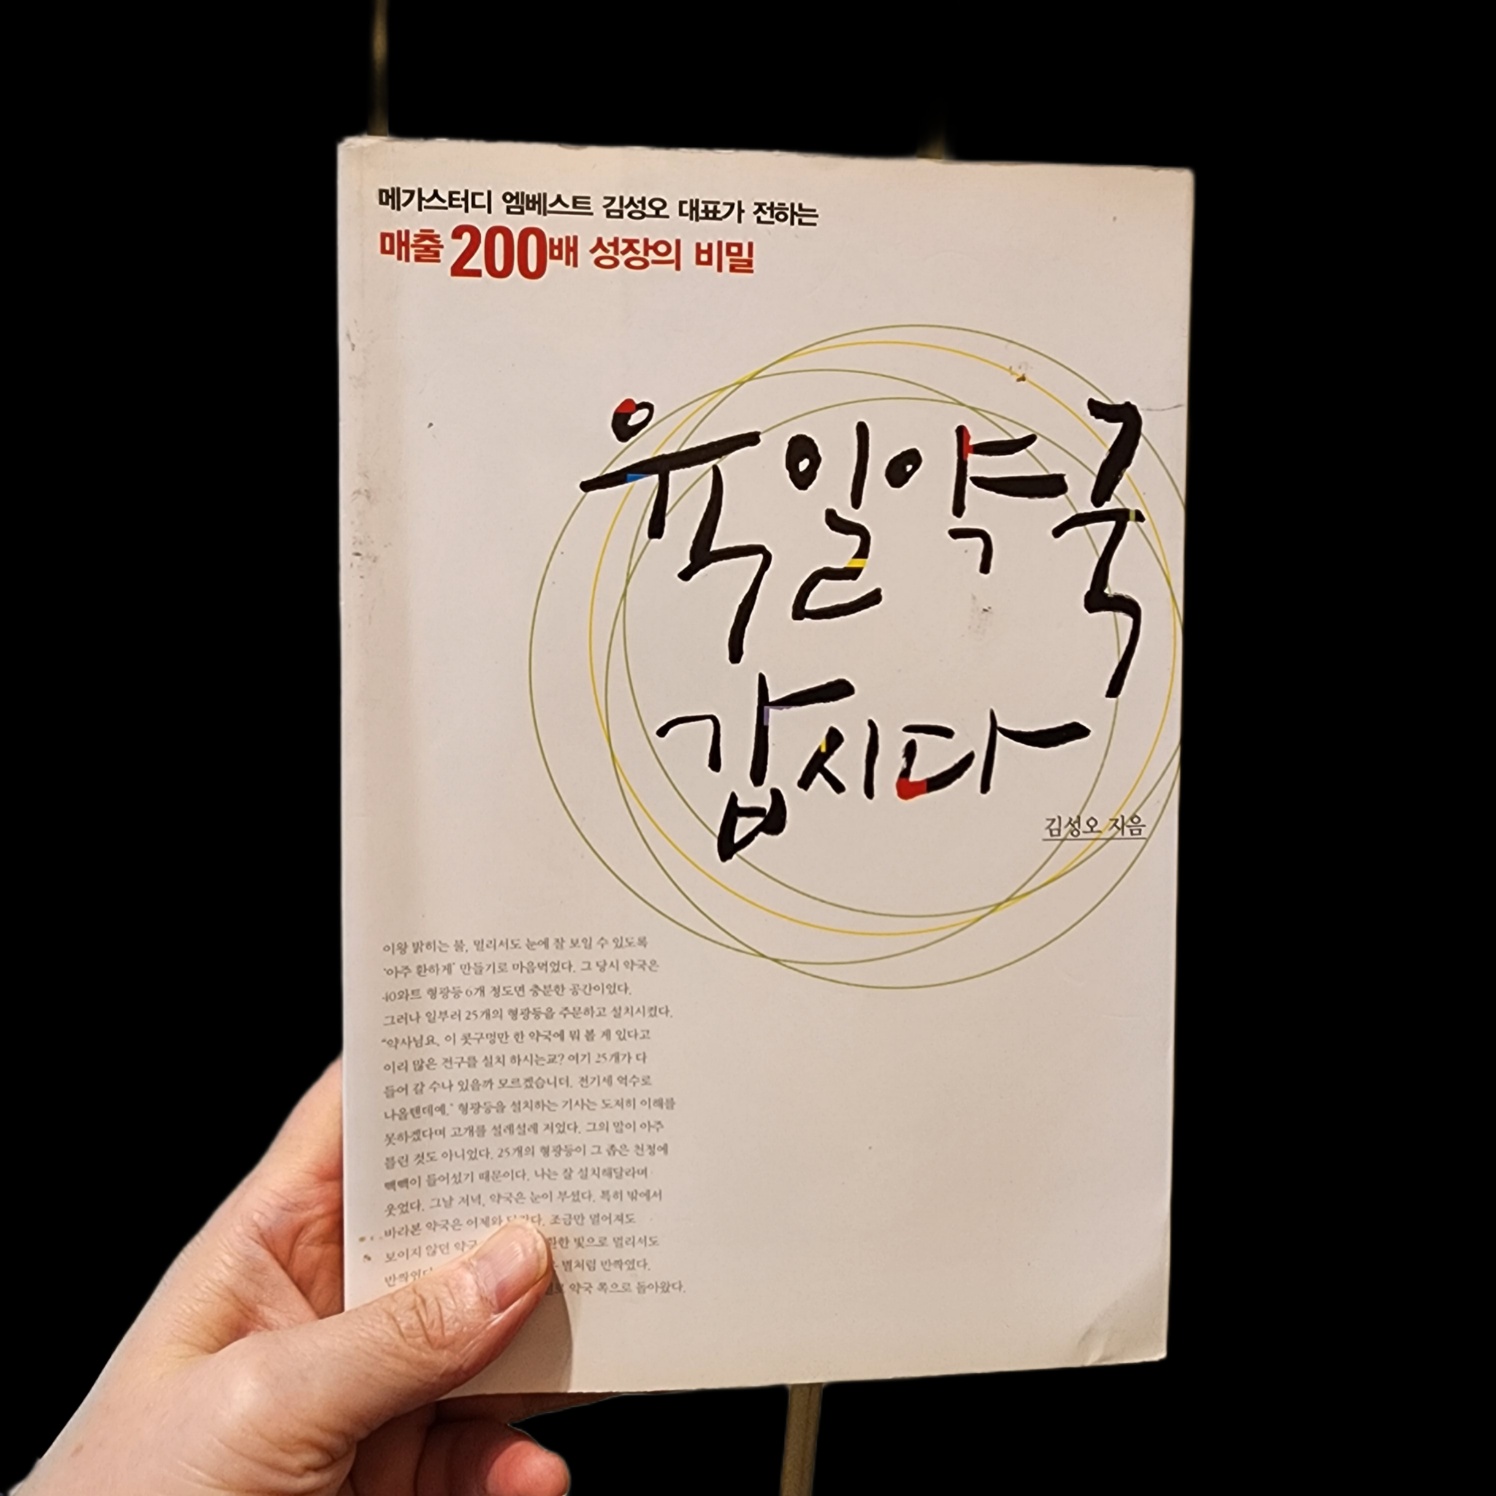 메가스터디 엠베스트 김성오 대표가 전하는
매출 200배 성장의 비밀
육일약국
갑시다
김성오 지음
이왕 밝히는 불, 멀리서도 눈에 잘 보일 수 있도록
'아주 환하게' 만들기로 마음먹었다. 그 당시 약국은
40와트 형광등 6개 정도면 충분한 공간이었다.
그러나 일부러 25개의 형광등을 주문하고 설치시켰다.
"약사님요, 이 콧구멍만 한 약국에 뭐 볼 게 있다고
이리 많은 전구를 설치 하시는교? 여기 25개가 다
들어 갈 수나 있을까 모르겠습니더. 전기세 억수로
나올텐데예." 형광등을 설치하는 기사는 도저히 이해를
못하겠다며 고개를 설레설레 저었다. 그의 말이 아주
틀린 것도 아니었다. 25개의 형광등이 그 좁은 천정에
빽빽이 들어섰기 때문이다. 나는 잘 설치해달라며
웃었다. 그날 저녁, 약국은 눈이 부셨다. 특히 밖에서
바라본 약국은 어제와 달랐다. 조금만 멀어져도
보이지 않던 약국 환한 빛으로 멀리서도
반짝였다 별처럼 반짝였다.
약국 쪽으로 돌아왔다.